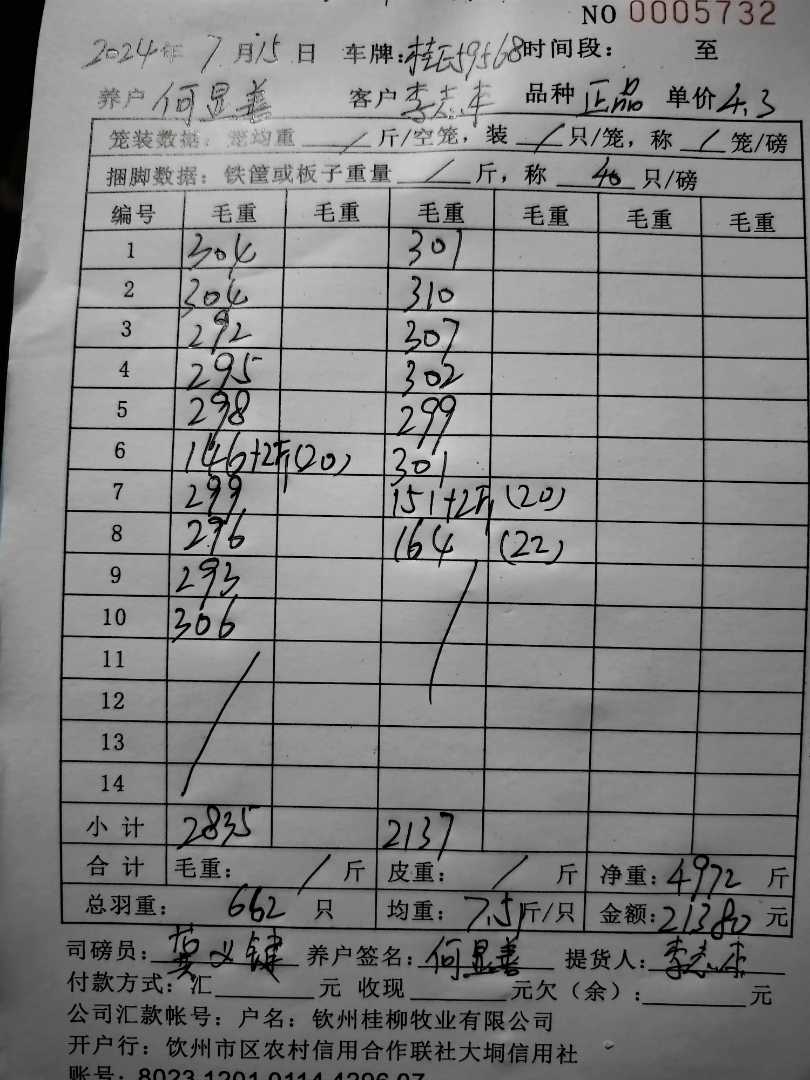 NO 0005732
2024年 7月15日 车牌:桂E59568 时间段: 至
养户 何显善 客户 李志 品种 正品 单价 4.3
笼装数据: 笼均重 / 斤/空笼, 装 / 只/笼, 称 / 笼/磅
捆脚数据: 铁筐或板子重量 / 斤, 称 40 只/磅
编号 毛重 毛重 毛重 毛重 毛重 毛重
1 304 301
2 304 310
3 292 307
4 295 302
5 298 299
6 146+2斤(20) 301
7 299 151+2斤 (20)
8 296 164 (22)
9 293 /
10 306
11 /
12
13
14
小计 2835 2137
合计 毛重: / 斤 皮重: / 斤 净重: 4972 斤
总羽重: 662 只 均重: 7.51斤/只 金额: 21380 元
司磅员: 龚义键 养户签名: 何显善 提货人: 李志
付款方式: 汇 元 收现 元欠(余): 元
公司汇款帐号: 户名: 钦州桂柳牧业有限公司
开户行: 饮州市区农村信用合作联社大垌信用社
账号: 8023 1201 0114 4296 07